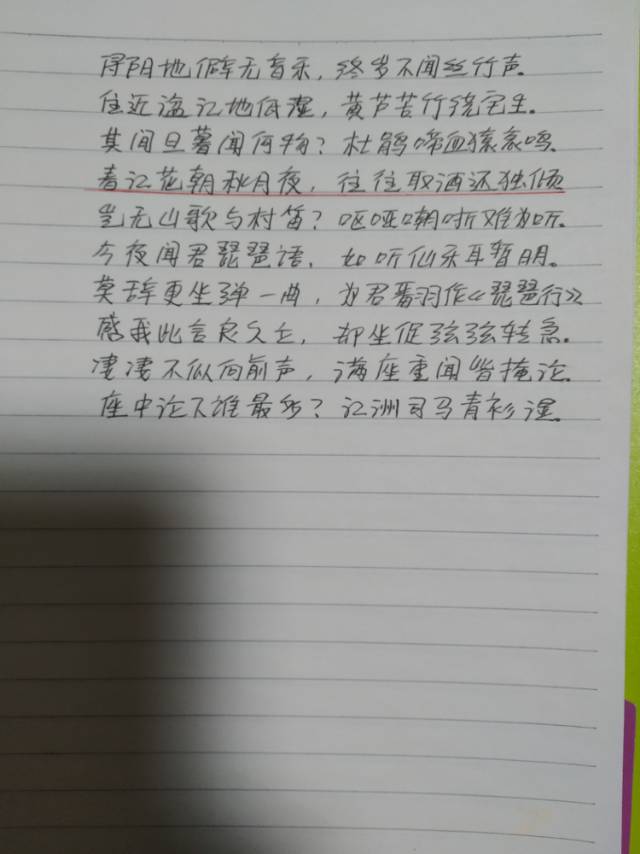 浔阳地僻无音乐，终岁不闻丝竹声。
住近湓江地低湿，黄芦苦竹绕宅生。
其间旦暮闻何物？杜鹃啼血猿哀鸣。
春江花朝秋月夜，往往取酒还独倾
岂无山歌与村笛？呕哑嘲哳难为听。
今夜闻君琵琶语，如听仙乐耳暂明。
莫辞更坐弹一曲，为君翻作《琵琶行》
感我此言良久立，却坐促弦弦转急。
凄凄不似向前声，满座重闻皆掩泣。
座中泣下谁最多？江洲司马青衫湿。